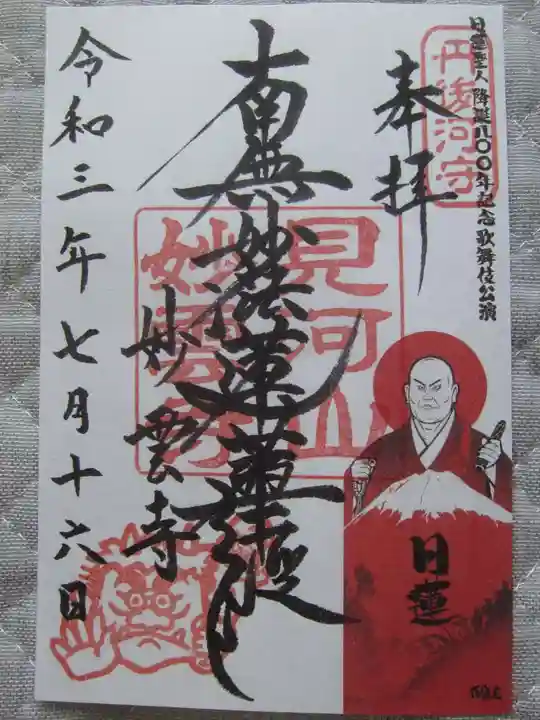 日蓮聖人降誕八〇〇年記念歌舞伎公演
丹後河守
奉拝
南無妙法蓮華経
見河山
妙雲寺
妙雲寺
令和三年七月十六日
日蓮